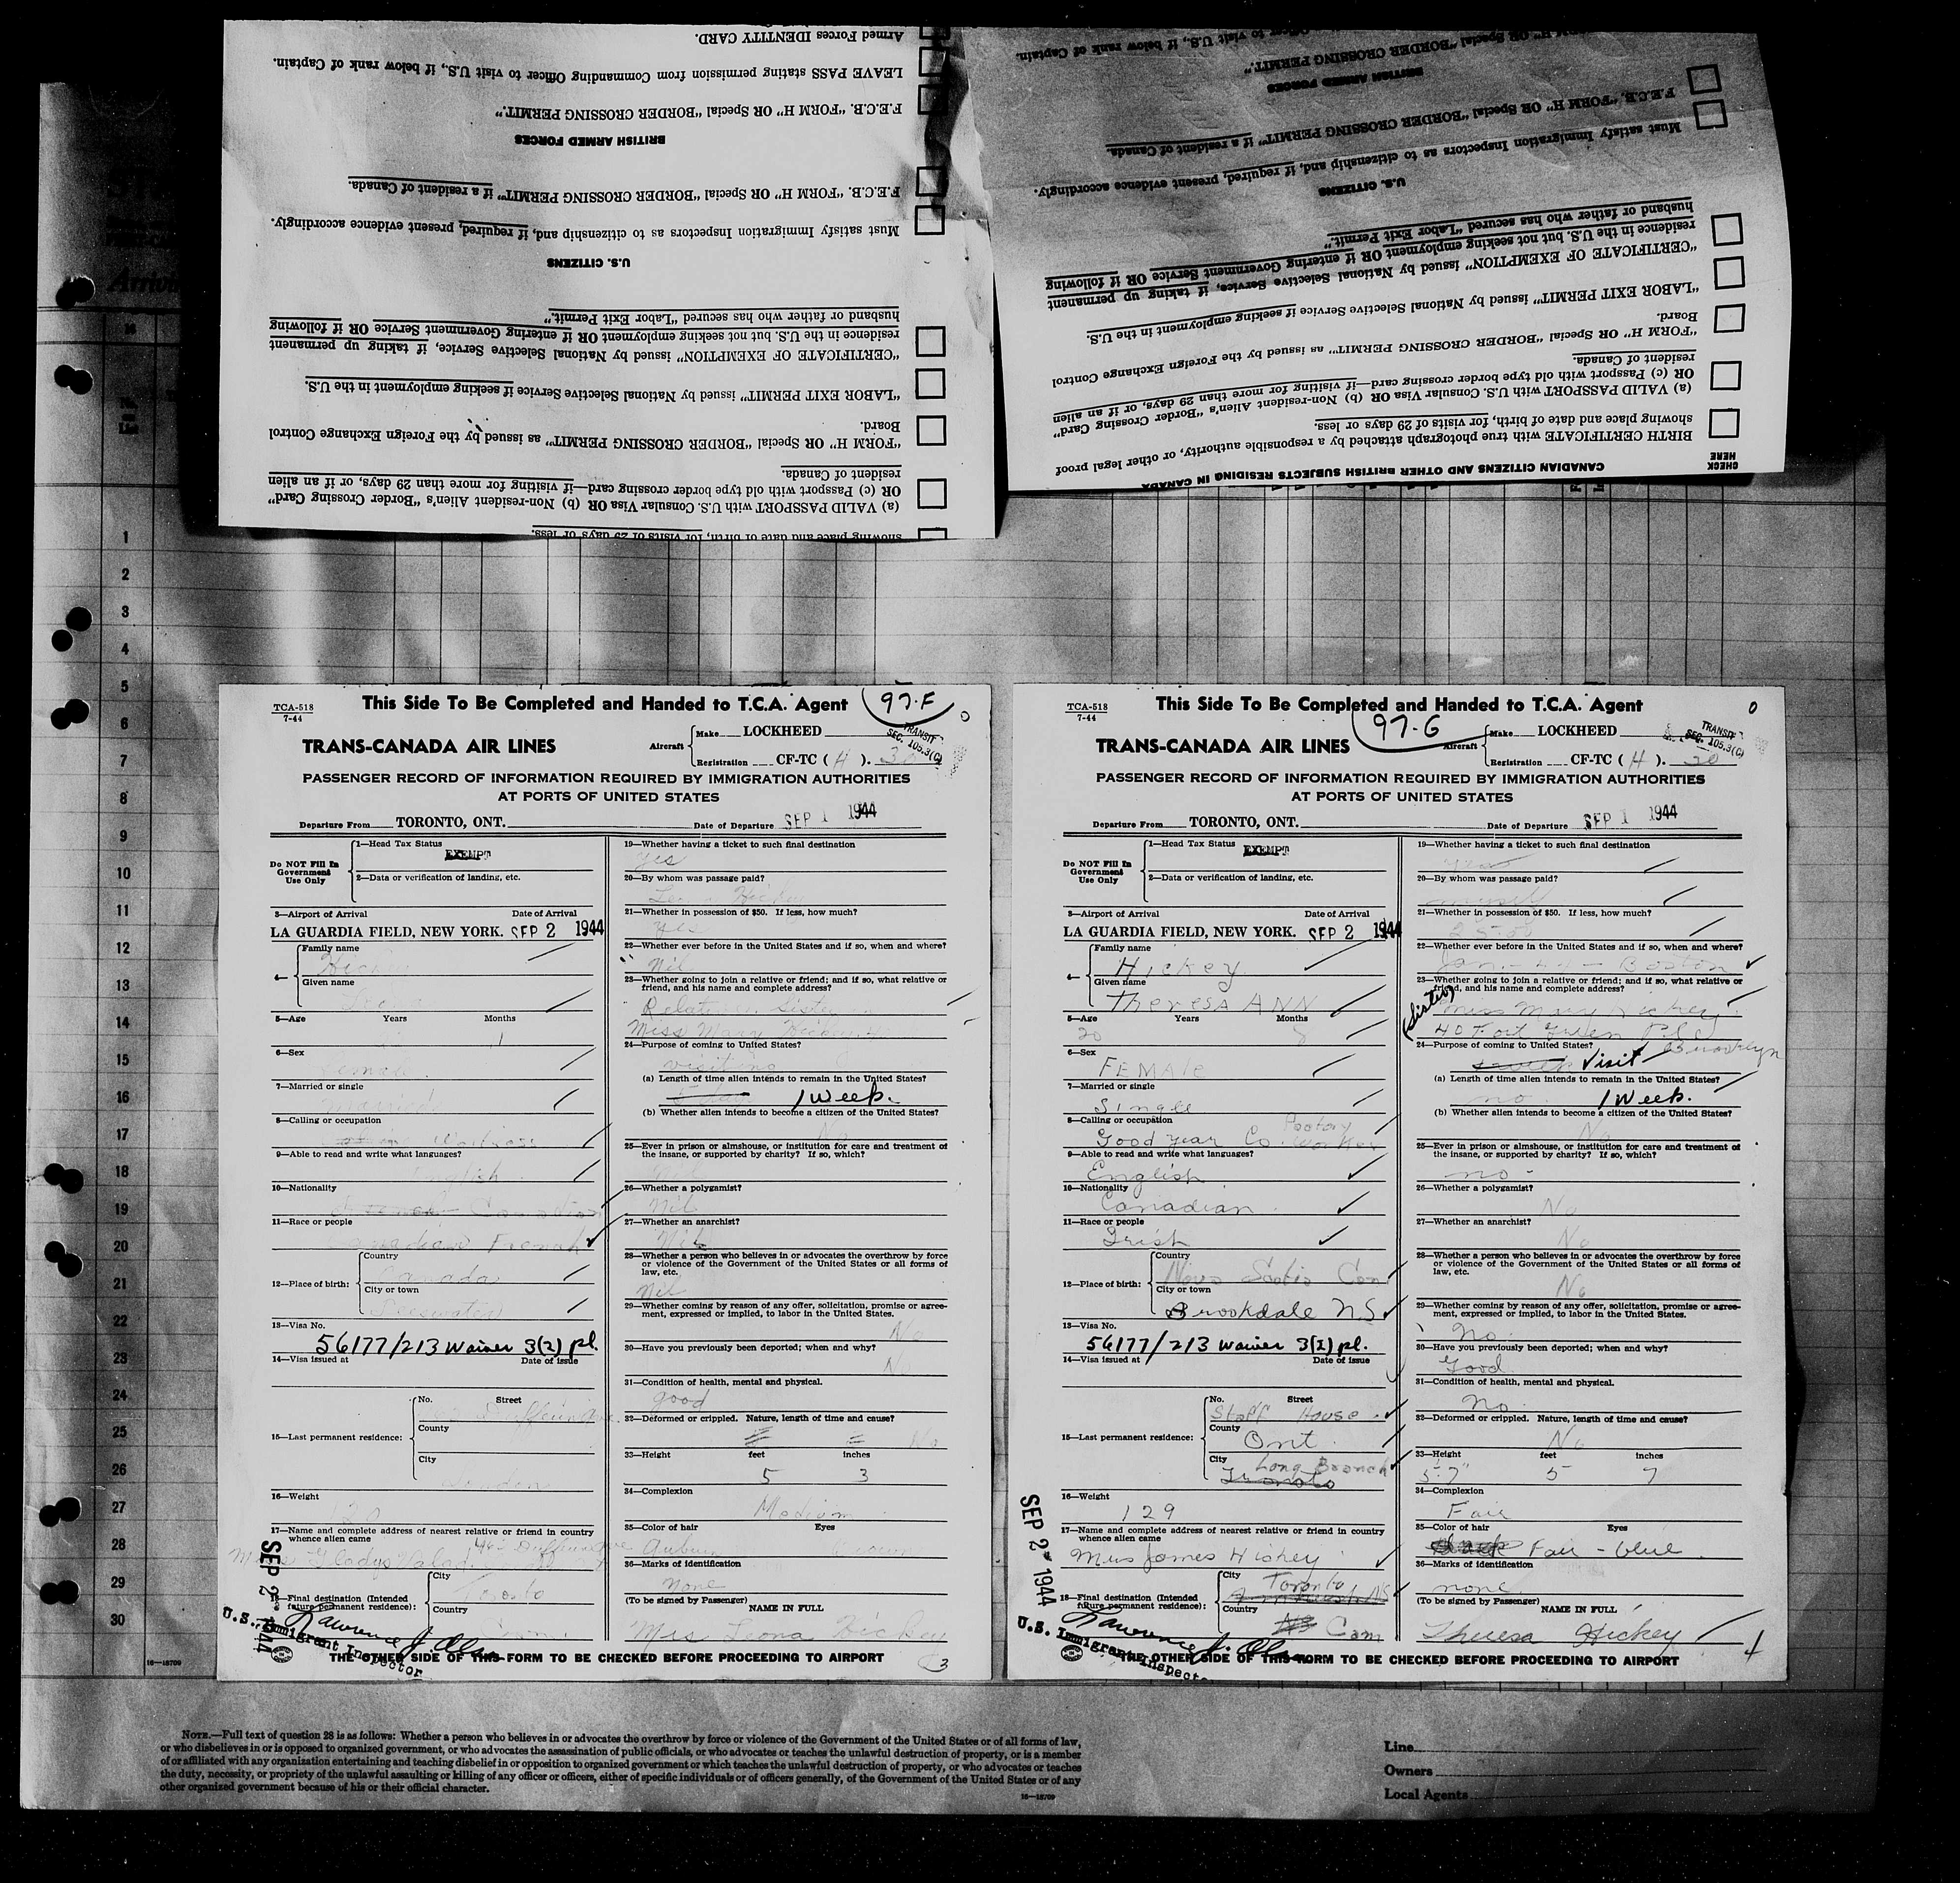 Armed Forces IDENTITY CARD.
LEAVE PASS stating permission from Commanding Officer to visit U.S., if below rank of Captain.
F.E.C.B. "FORM H" OR Special "BORDER CROSSING PERMIT."
BRITISH ARMED FORCES
F.E.C.B. "FORM H" OR Special "BORDER CROSSING PERMIT" if a resident of Canada.
Must satisfy Immigration Inspectors as to citizenship and, if required, present evidence accordingly.
U.S. CITIZENS
husband or father who has secured "Labor Exit Permit."
residence in the U.S. but not seeking employment OR if entering Government Service OR if following
"CERTIFICATE OF EXEMPTION" issued by National Selective Service, if taking up permanent
"LABOR EXIT PERMIT" issued by National Selective Service if seeking employment in the U.S.
Board.
"FORM H" OR Special "BORDER CROSSING PERMIT" as issued by the Foreign Exchange Control
resident of Canada.
OR (c) Passport with old type border crossing card—if visiting for more than 29 days, or if an alien
(a) VALID PASSPORT with U.S. Consular Visa OR (b) Non-resident Alien's "Border Crossing Card"
showing place and date of birth, for visits of 29 days or less.
Officer to visit U.S., if below rank of Captain.
"FORM H" OR Special "BORDER CROSSING PERMIT."
BRITISH ARMED FORCES
F.E.C.B. "FORM H" OR Special "BORDER CROSSING PERMIT" if a resident of Canada.
Must satisfy Immigration Inspectors as to citizenship and, if required, present evidence accordingly.
U.S. CITIZENS
husband or father who has secured "Labor Exit Permit."
residence in the U.S. but not seeking employment OR if entering Government Service OR if following
"CERTIFICATE OF EXEMPTION" issued by National Selective Service, if taking up permanent
"LABOR EXIT PERMIT" issued by National Selective Service if seeking employment in the U.S.
Board.
"FORM H" OR Special "BORDER CROSSING PERMIT" as issued by the Foreign Exchange Control
resident of Canada.
OR (c) Passport with old type border crossing card—if visiting for more than 29 days, or if an alien
(a) VALID PASSPORT with U.S. Consular Visa OR (b) Non-resident Alien's "Border Crossing Card"
showing place and date of birth, for visits of 29 days or less.
BIRTH CERTIFICATE with true photograph attached by a responsible authority, or other legal proof
CANADIAN CITIZENS AND OTHER BRITISH SUBJECTS RESIDING IN CANADA
CHECK HERE
1
2
3
4
5
6
7
8
9
10
11
12
13
14
15
16
17
18
19
20
21
22
23
24
25
26
27
28
29
30
16—18709
TCA-518
7-44
This Side To Be Completed and Handed to T.C.A. Agent
97-F
TRANS-CANADA AIR LINES
Aircraft
Make LOCKHEED
Registration CF-TC (H).
TRANSIT
SEC. 105.3(C)
PASSENGER RECORD OF INFORMATION REQUIRED BY IMMIGRATION AUTHORITIES
AT PORTS OF UNITED STATES
Departure From TORONTO, ONT.
Date of Departure SEP 1 1944
Do NOT Fill In
Government
Use Only
1—Head Tax Status
EXEMPT
2—Data or verification of landing, etc.
3—Airport of Arrival Date of Arrival
LA GUARDIA FIELD, NEW YORK. SEP 2 1944
4—
Family name
Hickey
Given name
5—Age Years Months
6—Sex
Female
7—Married or single
Married
8—Calling or occupation
Waitress
9—Able to read and write what languages?
English
10—Nationality
Canadian
11—Race or people
Canadian French
12—Place of birth:
Country
Canada
City or town
13—Visa No.
56177/213 Waiver 3(2) pl.
14—Visa issued at Date of issue
15—Last permanent residence:
No. Street
County
City
London
16—Weight
120
17—Name and complete address of nearest relative or friend in country
whence alien came
Gladys
18—Final destination (Intended
future permanent residence):
City
Toronto
Country
19—Whether having a ticket to such final destination
yes
20—By whom was passage paid?
Hickey
21—Whether in possession of $50. If less, how much?
Yes
22—Whether ever before in the United States and if so, when and where?
Nil
23—Whether going to join a relative or friend; and if so, what relative or
friend, and his name and complete address?
Relative Sister
Miss Mary Hickey
24—Purpose of coming to United States?
visiting
(a) Length of time alien intends to remain in the United States?
1 Week.
(b) Whether alien intends to become a citizen of the United States?
No
25—Ever in prison or almshouse, or institution for care and treatment of
the insane, or supported by charity? If so, which?
26—Whether a polygamist?
Nil
27—Whether an anarchist?
Nil
28—Whether a person who believes in or advocates the overthrow by force
or violence of the Government of the United States or all forms of
law, etc.
Nil
29—Whether coming by reason of any offer, solicitation, promise or agree-
ment, expressed or implied, to labor in the United States.
No
30—Have you previously been deported; when and why?
31—Condition of health, mental and physical.
good
32—Deformed or crippled. Nature, length of time and cause?
No
33—Height feet inches
5 3
34—Complexion
Medium
35—Color of hair Eyes
Auburn Brown
36—Marks of identification
none
(To be signed by Passenger) NAME IN FULL
Mrs Leona Hickey
SEP 2 1944
U.S. Immigrant Inspector
THE OTHER SIDE OF THIS FORM TO BE CHECKED BEFORE PROCEEDING TO AIRPORT
3
TCA-518
7-44
This Side To Be Completed and Handed to T.C.A. Agent
97-G
TRANS-CANADA AIR LINES
Aircraft
Make LOCKHEED
Registration CF-TC (H). 30
TRANSIT
SEC. 105.3(C)
PASSENGER RECORD OF INFORMATION REQUIRED BY IMMIGRATION AUTHORITIES
AT PORTS OF UNITED STATES
Departure From TORONTO, ONT.
Date of Departure SEP 1 1944
Do NOT Fill In
Government
Use Only
1—Head Tax Status
EXEMPT
2—Data or verification of landing, etc.
3—Airport of Arrival Date of Arrival
LA GUARDIA FIELD, NEW YORK. SEP 2 1944
4—
Family name
Hickey
Given name
Theresa Ann
5—Age Years Months
20 8
6—Sex
FEMALE
7—Married or single
Single
8—Calling or occupation
Good year Co. Factory Worker
9—Able to read and write what languages?
English
10—Nationality
Canadian
11—Race or people
Irish
12—Place of birth:
Country
Nova Scotia Can
City or town
Brookdale N.S.
13—Visa No.
56177/213 Waiver 3(2) pl.
14—Visa issued at Date of issue
15—Last permanent residence:
No. Street
Staff House
County
Ont.
City
Long Branch
Toronto
16—Weight
129
17—Name and complete address of nearest relative or friend in country
whence alien came
Mrs James Hickey
18—Final destination (Intended
future permanent residence):
City
Toronto
Country
Can
19—Whether having a ticket to such final destination
yes
20—By whom was passage paid?
myself
21—Whether in possession of $50. If less, how much?
25.00
22—Whether ever before in the United States and if so, when and where?
Jan. - 44 - Boston
23—Whether going to join a relative or friend; and if so, what relative or
friend, and his name and complete address?
(Sister)
Miss Mary Hickey
40 Fort Green Plc
Brooklyn
24—Purpose of coming to United States?
Visit
(a) Length of time alien intends to remain in the United States?
no. 1 Week.
(b) Whether alien intends to become a citizen of the United States?
No
25—Ever in prison or almshouse, or institution for care and treatment of
the insane, or supported by charity? If so, which?
no -
26—Whether a polygamist?
No
27—Whether an anarchist?
No
28—Whether a person who believes in or advocates the overthrow by force
or violence of the Government of the United States or all forms of
law, etc.
No
29—Whether coming by reason of any offer, solicitation, promise or agree-
ment, expressed or implied, to labor in the United States.
No.
30—Have you previously been deported; when and why?
Good
31—Condition of health, mental and physical.
No.
32—Deformed or crippled. Nature, length of time and cause?
No
33—Height feet inches
5-7" 5 7
34—Complexion
Fair
35—Color of hair Eyes
Fair - blue
36—Marks of identification
none
(To be signed by Passenger) NAME IN FULL
Theresa Hickey
4
SEP 2 1944
U.S. Immigrant Inspector
THE OTHER SIDE OF THIS FORM TO BE CHECKED BEFORE PROCEEDING TO AIRPORT
NOTE.—Full text of question 28 is as follows: Whether a person who believes in or advocates the overthrow by force or violence of the Government of the United States or of all forms of law,
or who disbelieves in or is opposed to organized government, or who advocates the assassination of public officials, or who advocates or teaches the unlawful destruction of property, or is a member
of or affiliated with any organization entertaining and teaching disbelief in or opposition to organized government or which teaches the unlawful destruction of property, or who advocates or teaches
the duty, necessity, or propriety of the unlawful assaulting or killing of any officer or officers, either of specific individuals or of officers generally, of the Government of the United States or of any
other organized government because of his or their official character.
16—18709
Line
Owners
Local Agents